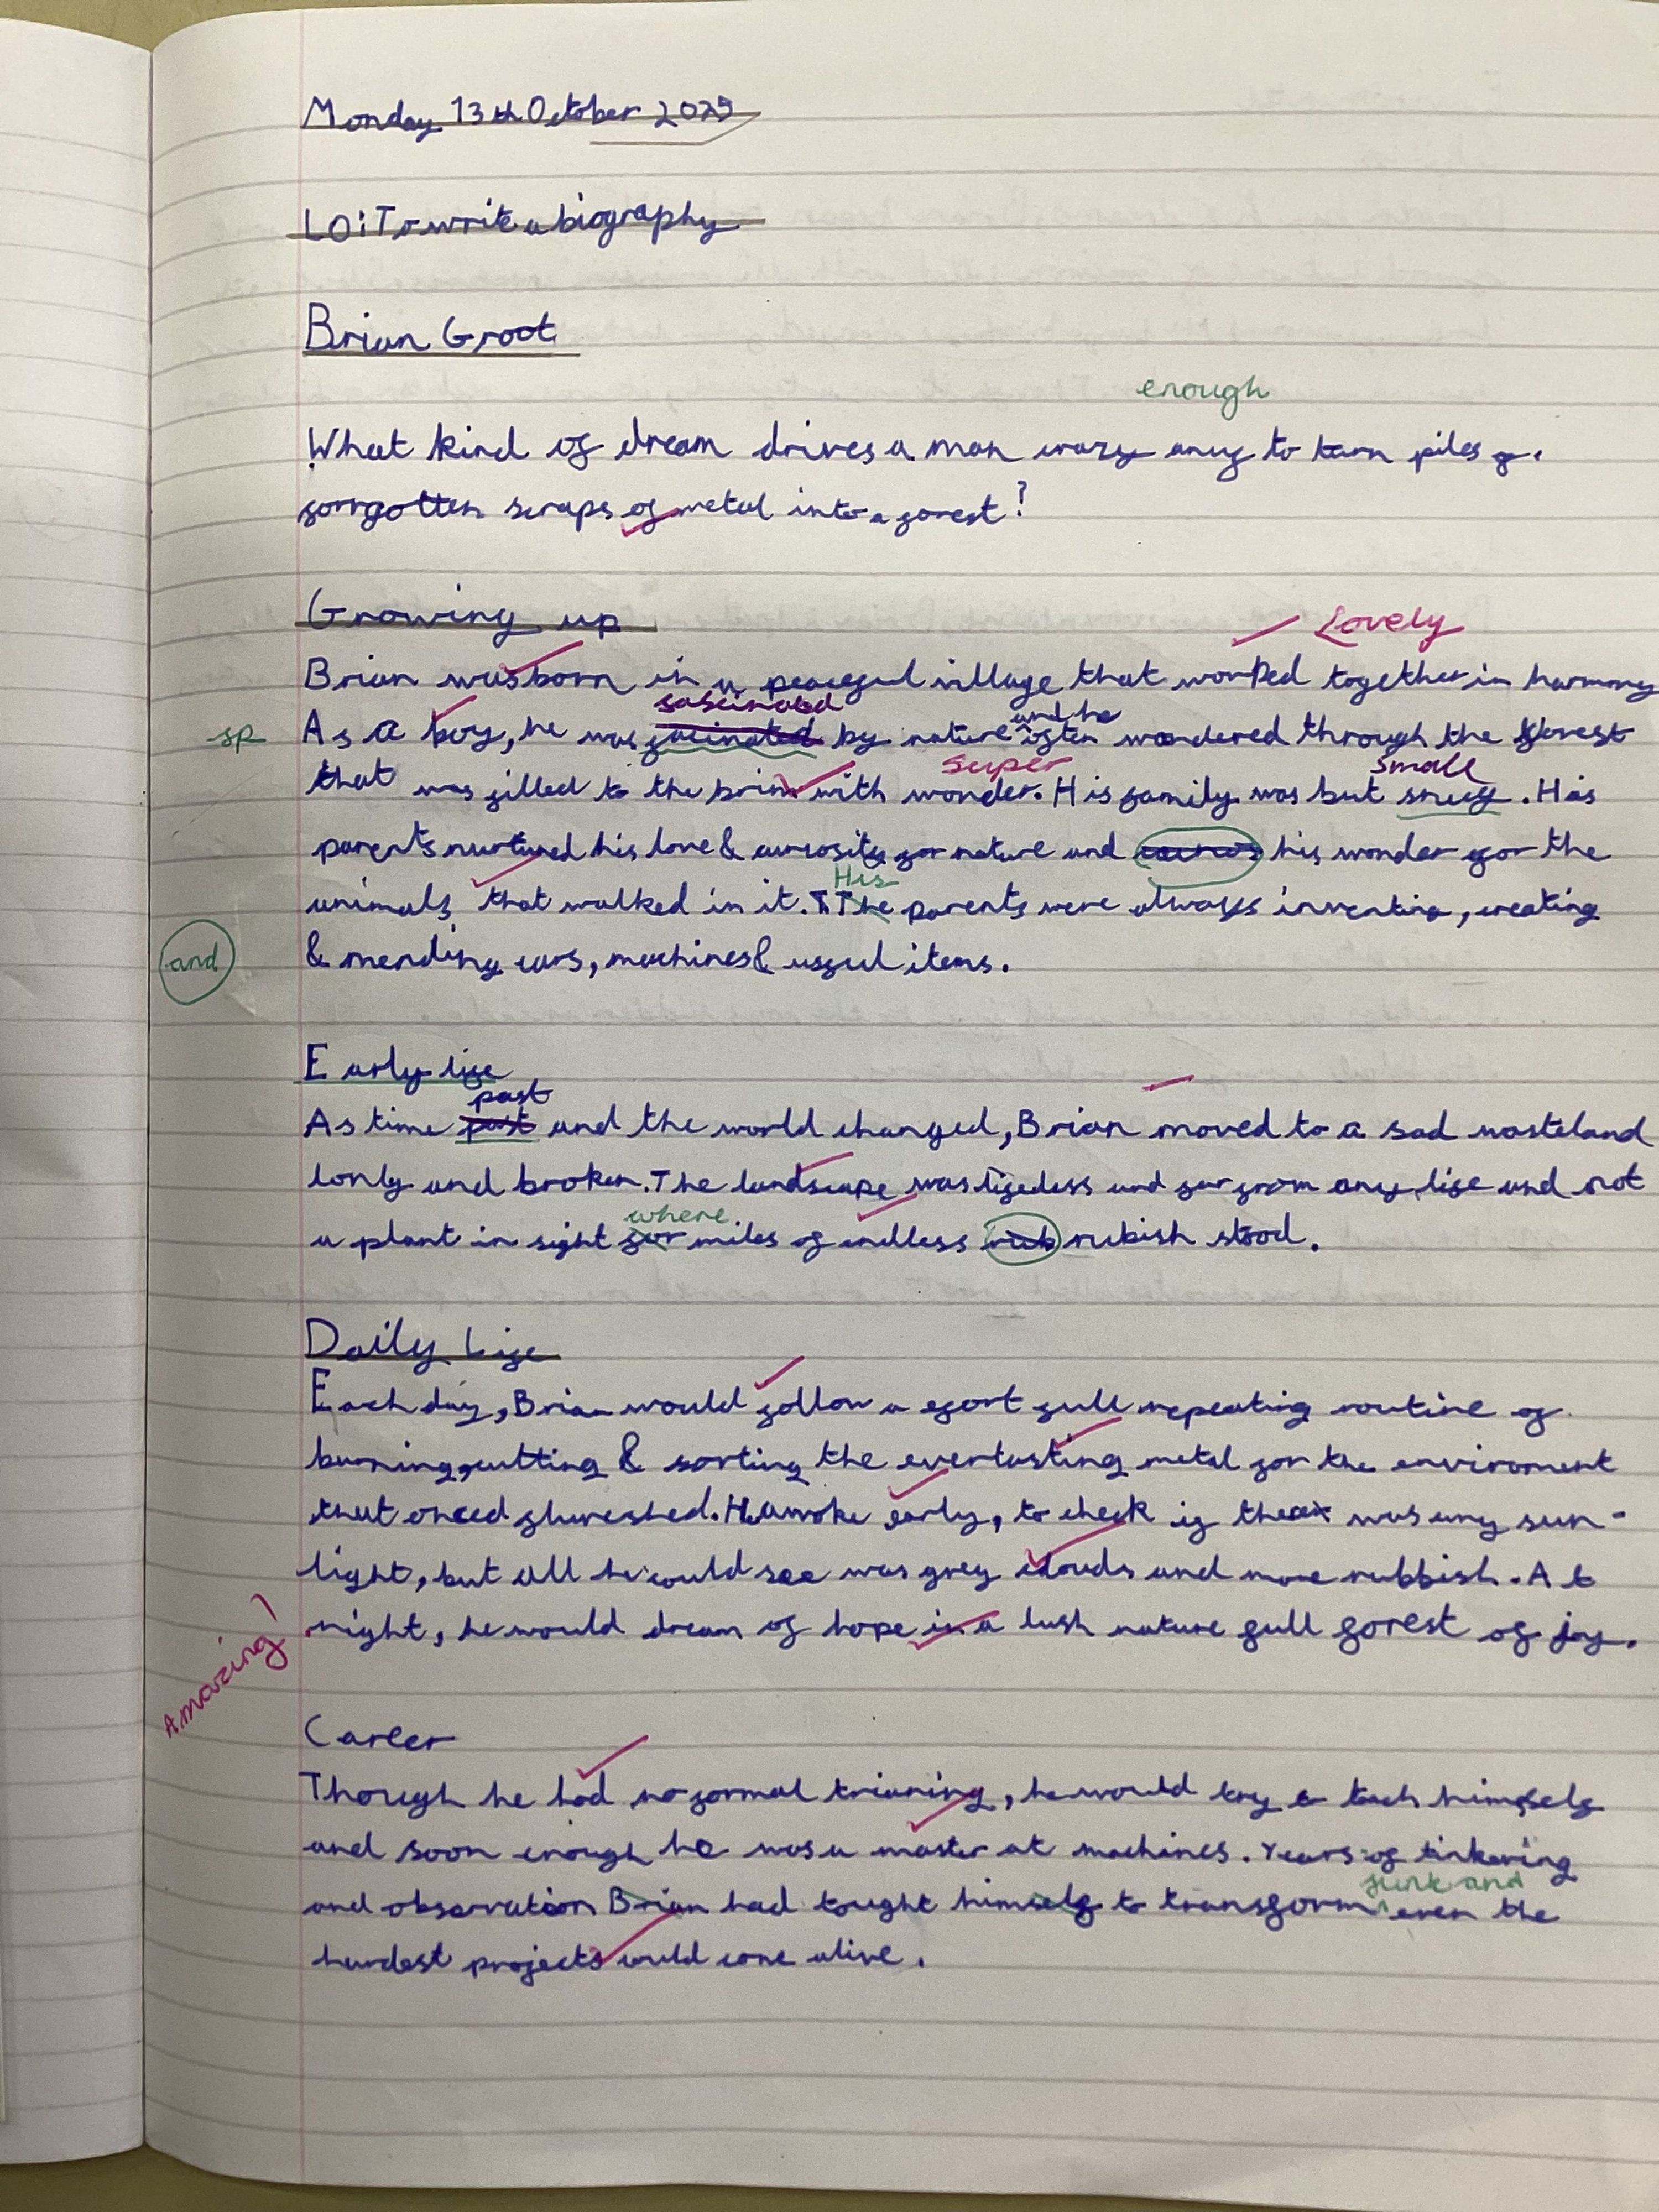 Monday 13th October 2025
LO: To write a biography
Brian Groot
enough
What kind of dream drives a man crazy to turn piles of
forrgotten scraps of metal into a forest?
Growing up
Lovely
Brian was born in a peaceful village that worked together in harmony
fascinated
and he
sp As a boy, he was facinated by nature often wondered through the forest
super small
that was filled to the brim with wonder. His family was but snug. His
parents nurtured his love & curiosity for nature and his wonder for the
His
animals that walked in it. The parents were always inventing, creating
and & mending cars, machines & useful items.
Early life
past
As time past and the world changed, Brian moved to a sad wasteland
lonly and broken. The landscape was lifeless and far from any life and not
where
a plant in sight for miles of endless rub rubish stood.
Daily Life
Each day, Brian would follow a efort full repeating routine of
burning, cutting & sorting the everlasting metal for the enviroment
that onced flureshed. He awoke early, to check if there was any sun-
light, but all he could see was grey clouds and more rubbish. At
Amazing! night, he would dream of hope in a lush nature full forest of joy.
Career
Though he had no formal trianing, he would try & teach himself
and soon enough he was a master at machines. Years of tinkering
junk and
and observation Brian had tought himself to transform even the
hardest projects could come alive.